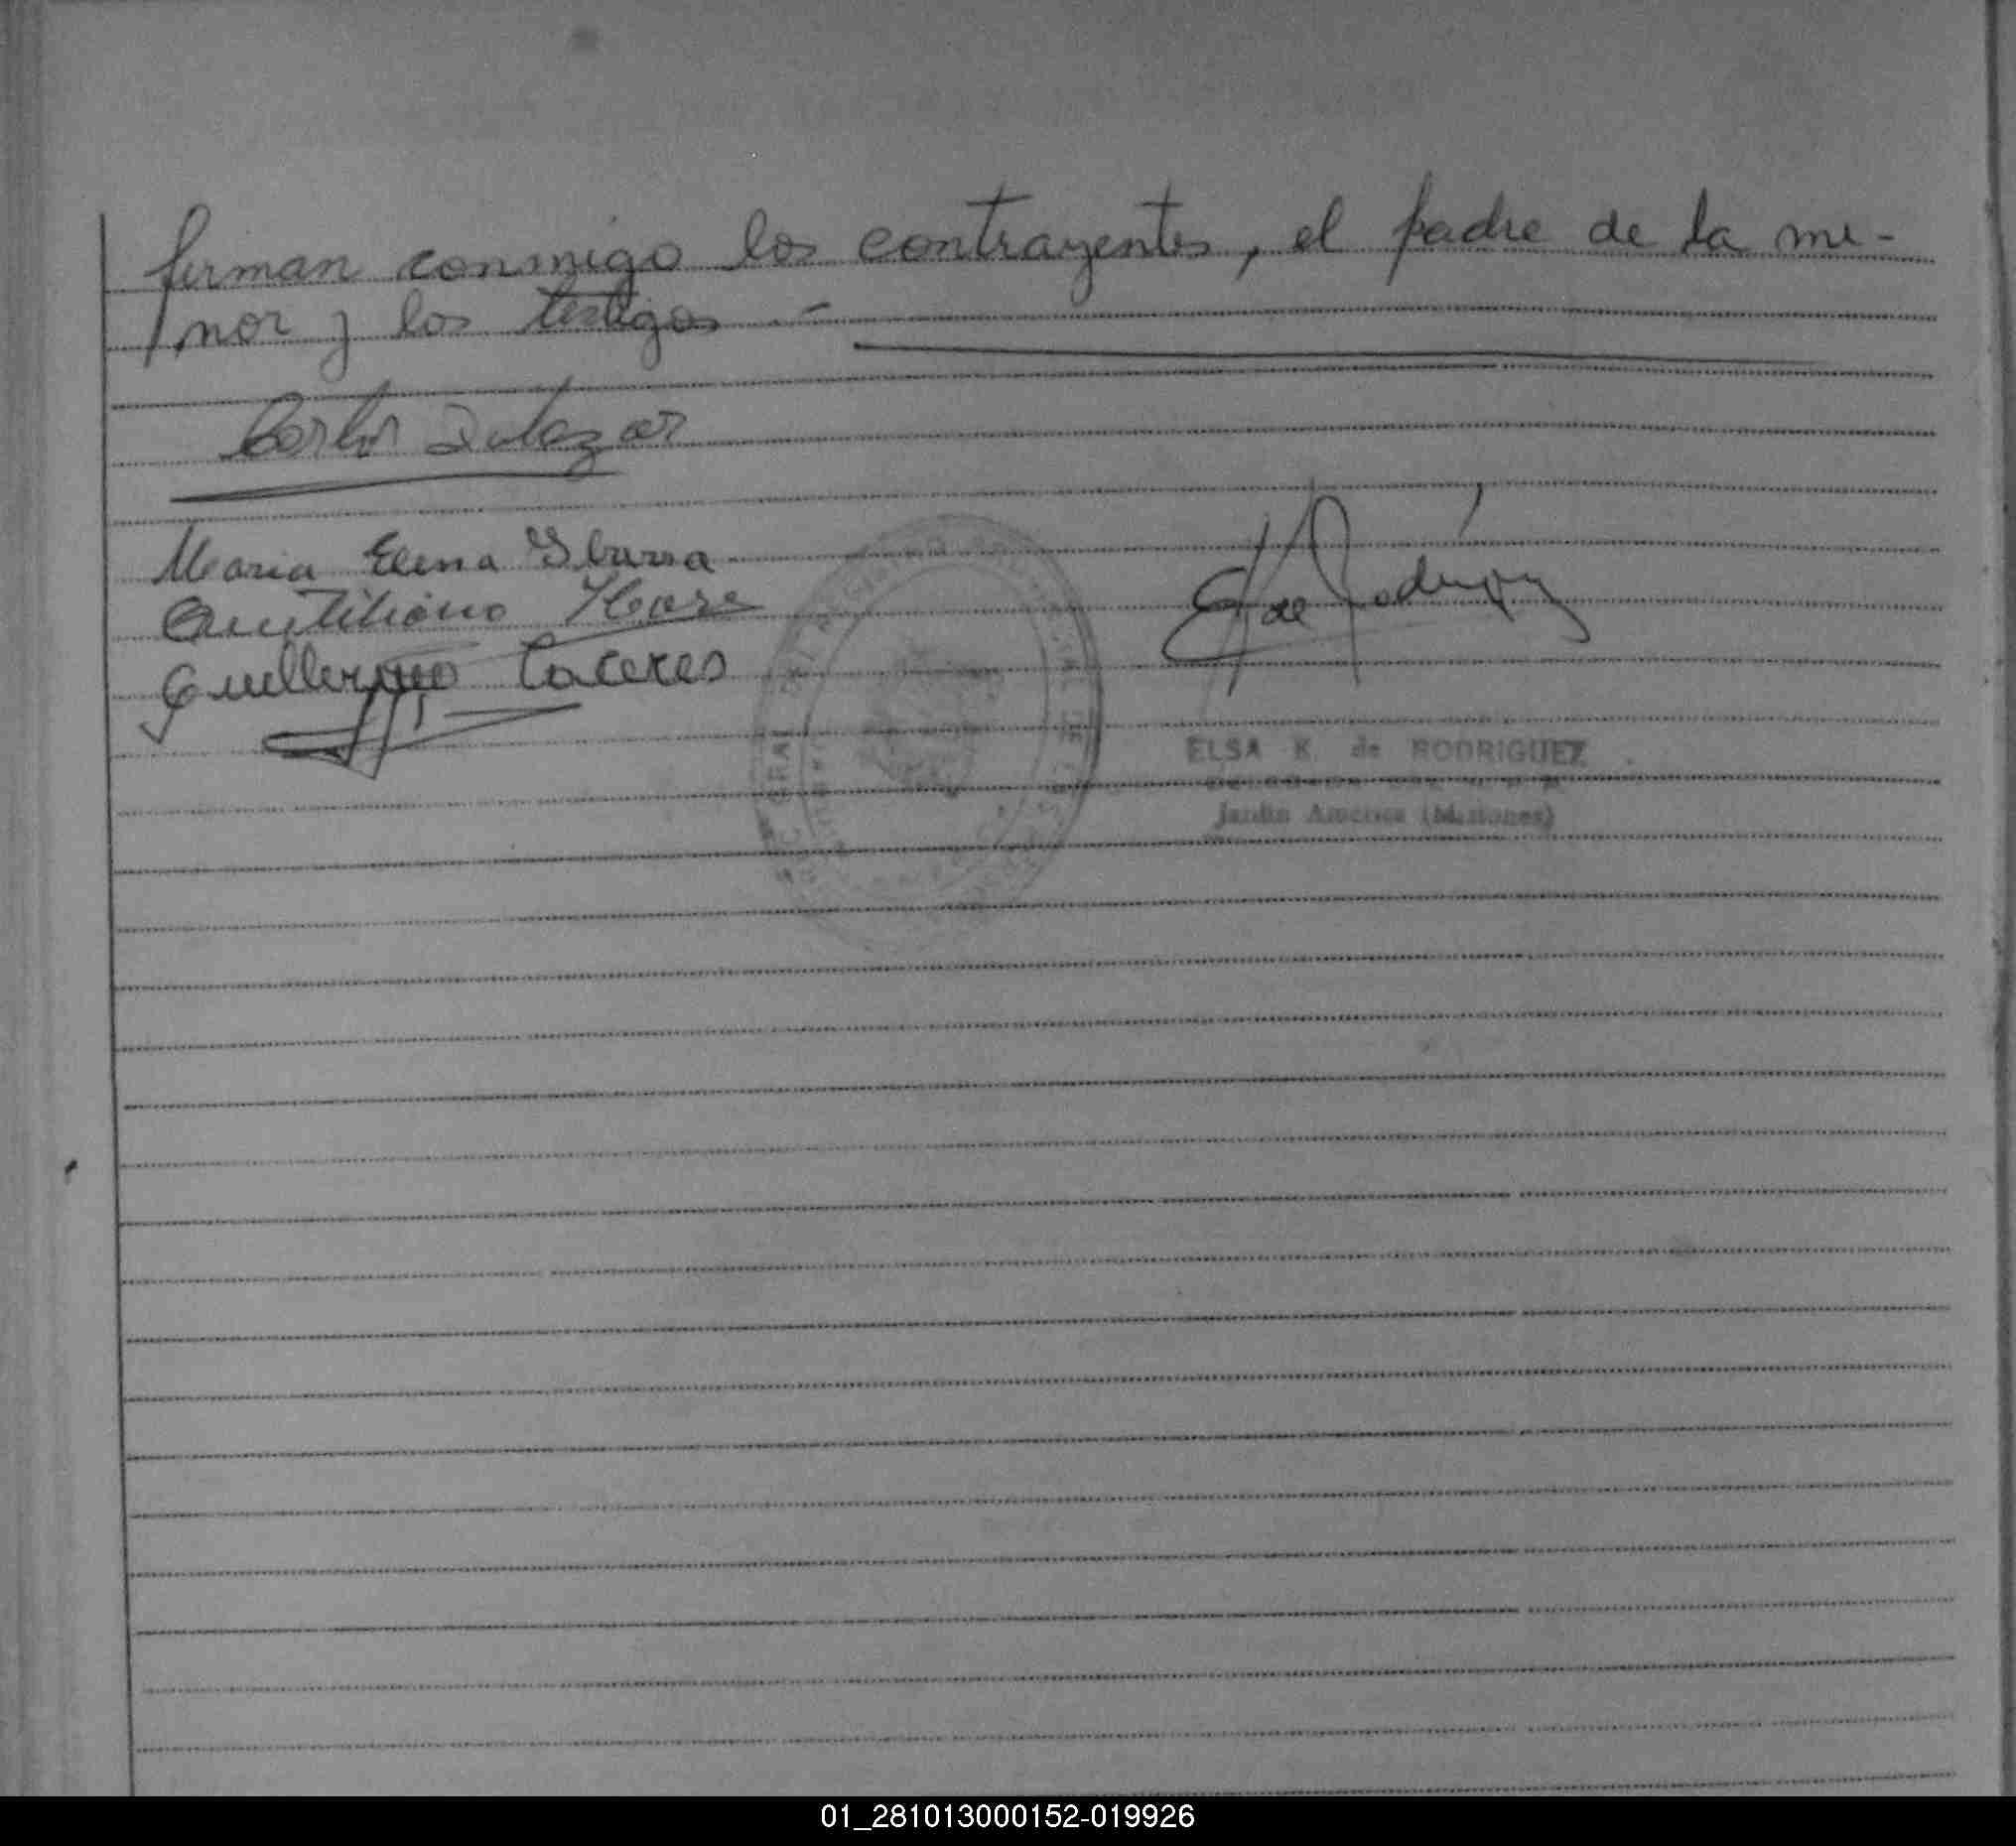 firman conmigo los contrayentes, el padre de la me-
nor y los testigos -
Carlos
Maria Elena Ybarra
Quintiliano
Guillermo Caceres
E K de Rodriguez
ELSA K. de RODRIGUEZ
Jardin America (Misiones)
01_281013000152-019926